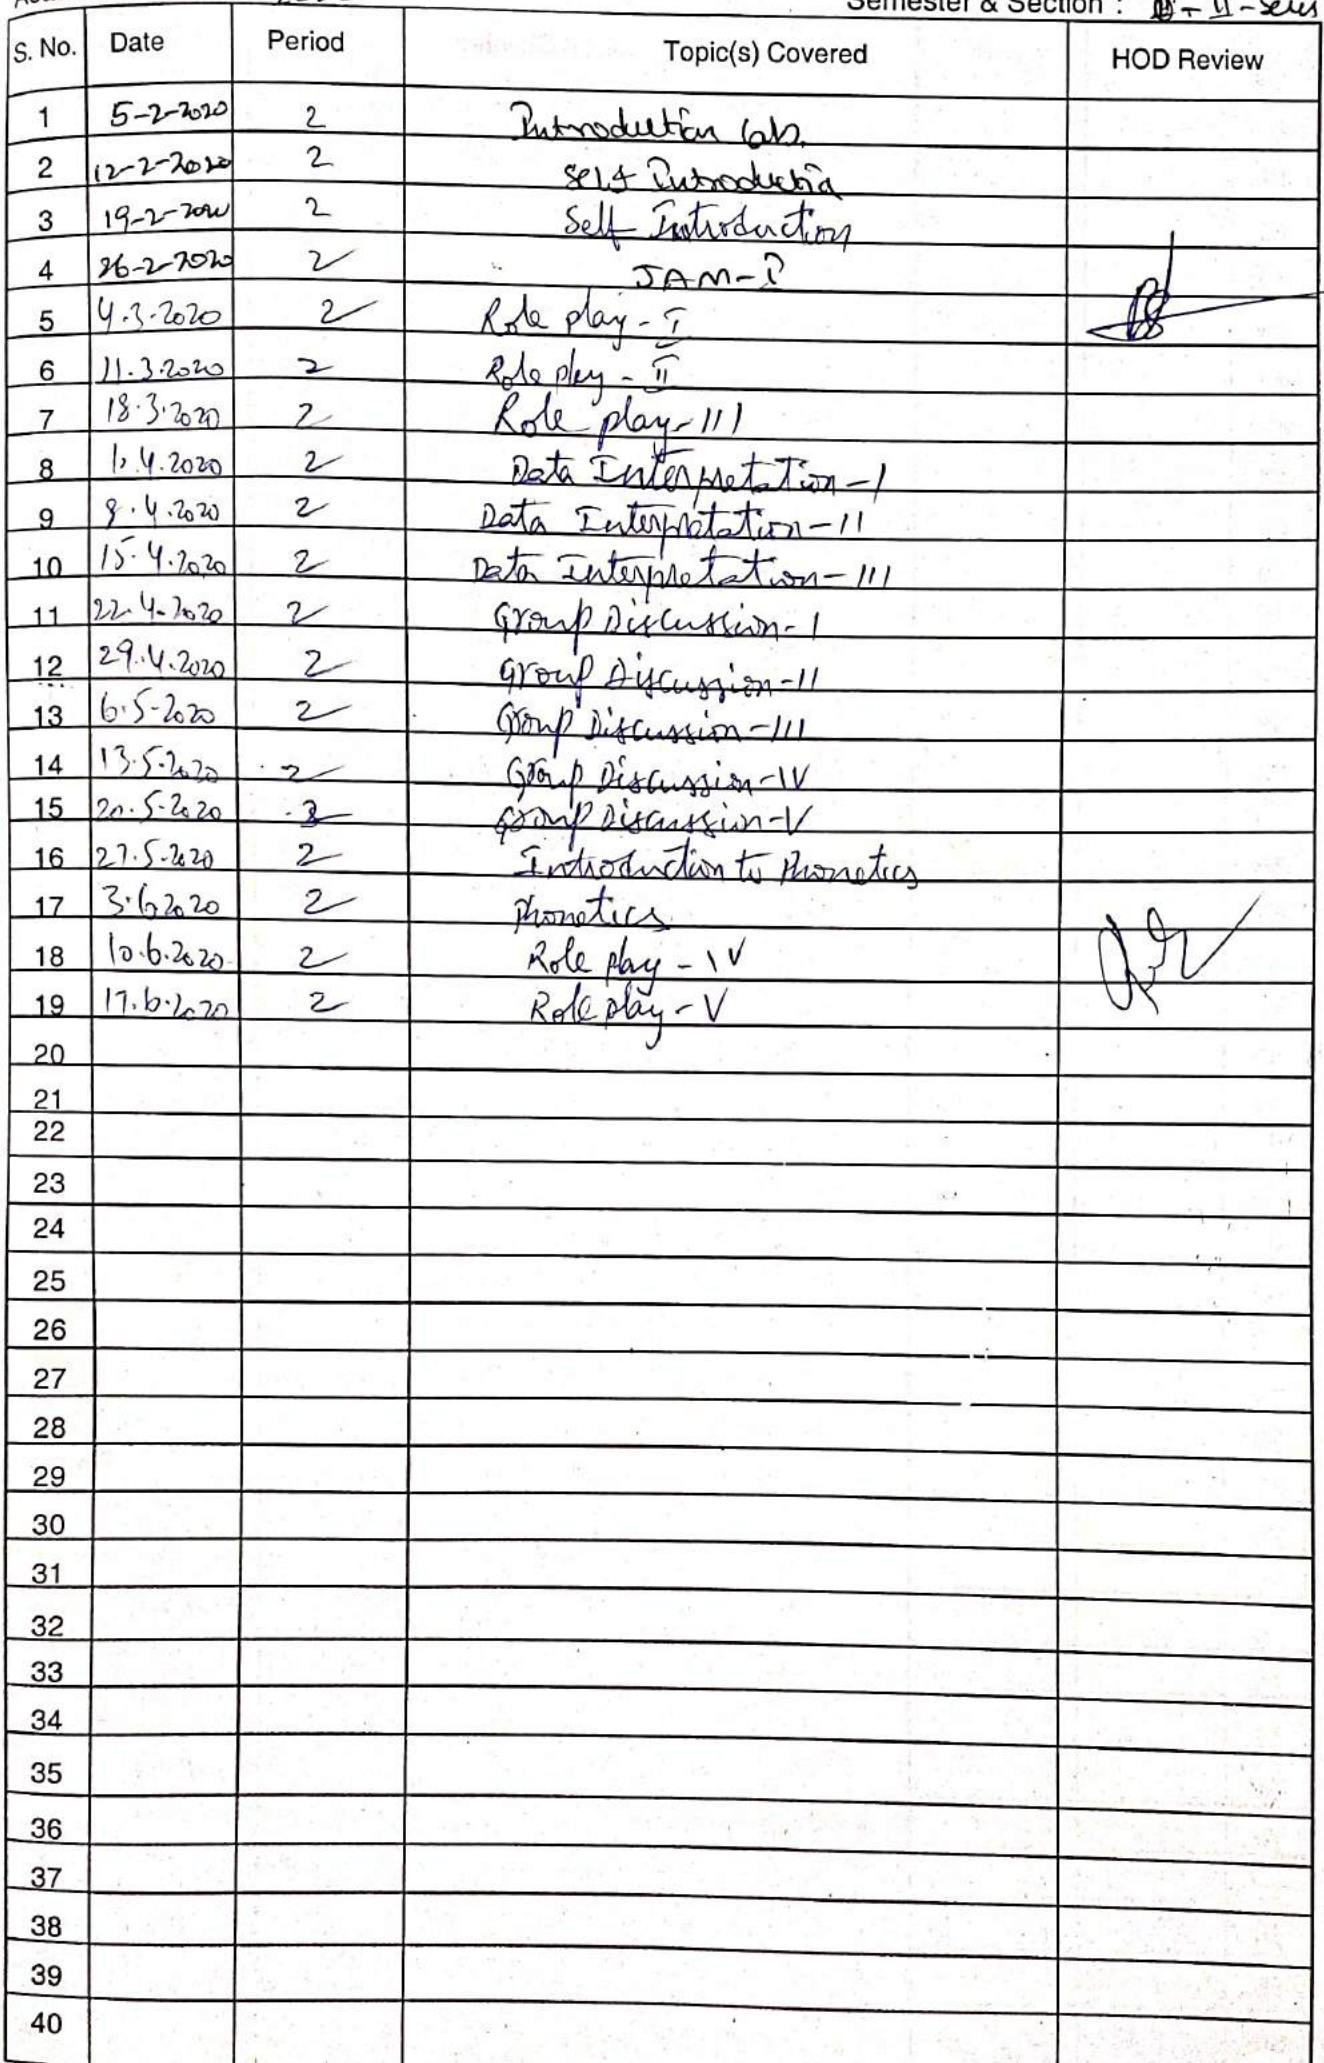 Semester & Section : II - Sem
S. No. Date Period Topic(s) Covered HOD Review
1 5-2-2020 2 Introduction Lab.
2 12-2-2020 2 Self Introduction
3 19-2-2020 2 Self Introduction
4 26-2-2020 2 JAM-I
5 4.3.2020 2 Role play - I
6 11.3.2020 2 Role play - II
7 18.3.2020 2 Role play-III
8 1.4.2020 2 Data Interpretation-I
9 8.4.2020 2 Data Interpretation-II
10 15.4.2020 2 Data Interpretation-III
11 22.4.2020 2 Group Discussion-I
12 29.4.2020 2 Group Discussion-II
13 6.5-2020 2 Group Discussion-III
14 13.5.2020 2 Group Discussion-IV
15 20.5.2020 2 Group Discussion-V
16 27.5.2020 2 Introduction to Phonetics
17 3.6.2020 2 Phonetics
18 10.6.2020 2 Role play - IV
19 17.6.2020 2 Role play - V
20
21
22
23
24
25
26
27
28
29
30
31
32
33
34
35
36
37
38
39
40